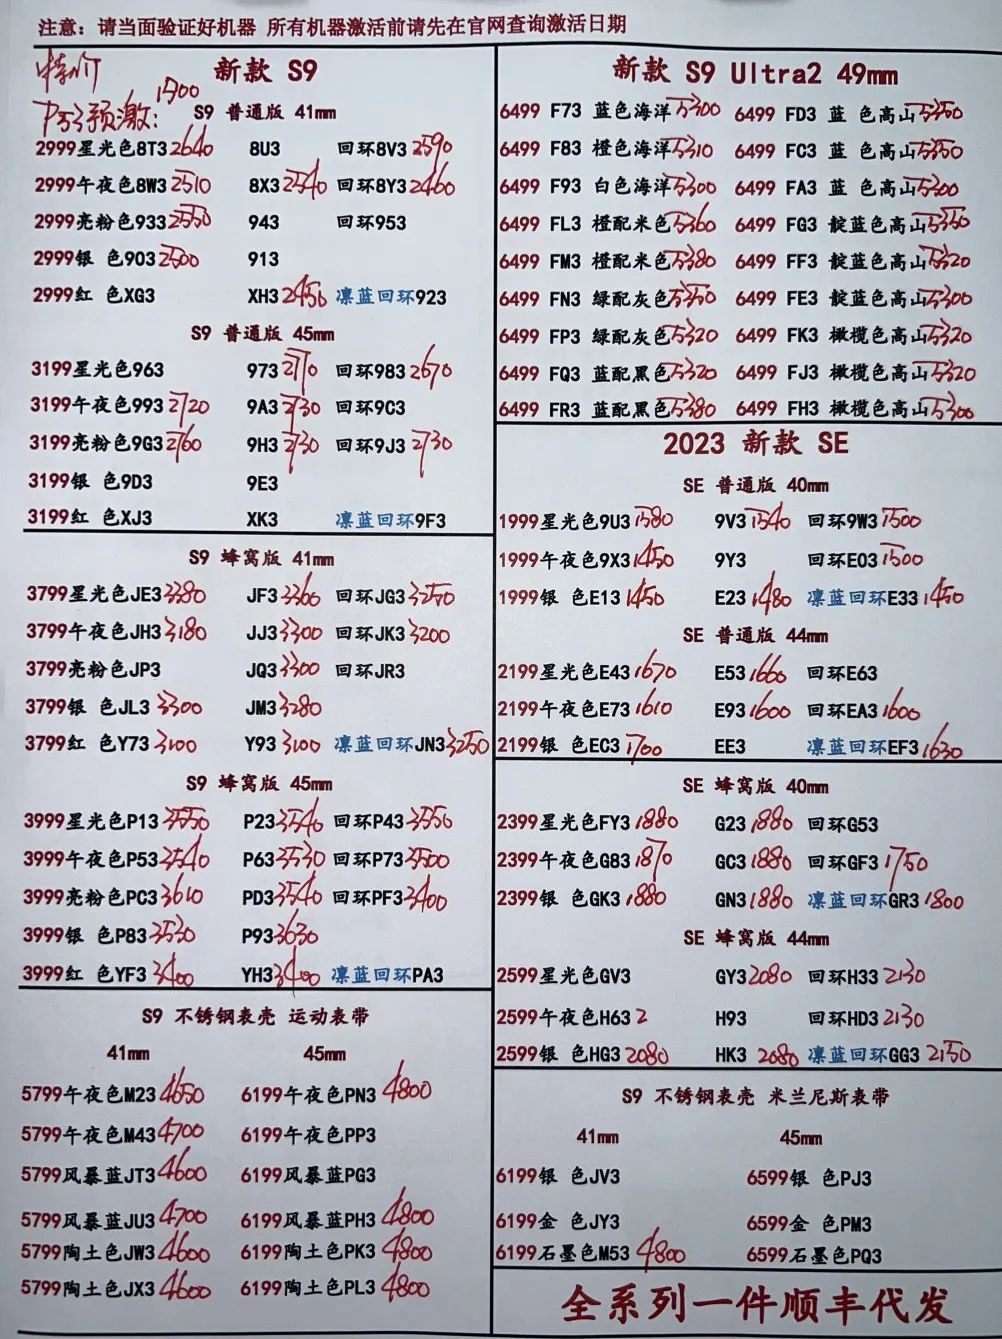 注意：请当面验证好机器 所有机器激活前请先在官网查询激活日期
特价
P53预激：1500
新款 S9
S9 普通版 41mm
2999星光色8T3 2640 8U3 回环8V3 2590
2999午夜色8W3 2510 8X3 2540 回环8Y3 2460
2999亮粉色933 2550 943 回环953
2999银 色903 2500 913
2999红 色XG3 XH3 2450 凛蓝回环923
S9 普通版 45mm
3199星光色963 973 2770 回环983 2670
3199午夜色993 2720 9A3 2730 回环9C3
3199亮粉色9G3 2760 9H3 2730 回环9J3 2730
3199银 色9D3 9E3
3199红 色XJ3 XK3 凛蓝回环9F3
S9 蜂窝版 41mm
3799星光色JE3 3380 JF3 3360 回环JG3 3250
3799午夜色JH3 3180 JJ3 3300 回环JK3 3200
3799亮粉色JP3 JQ3 3300 回环JR3
3799银 色JL3 3300 JM3 3280
3799红 色Y73 3100 Y93 3100 凛蓝回环JN3 3250
S9 蜂窝版 45mm
3999星光色P13 3550 P23 3540 回环P43 3550
3999午夜色P53 3540 P63 3530 回环P73 3500
3999亮粉色PC3 3610 PD3 3540 回环PF3 3400
3999银 色P83 3530 P93 3630
3999红 色YF3 3400 YH3 3400 凛蓝回环PA3
S9 不锈钢表壳 运动表带
41mm 45mm
5799午夜色M23 4650 6199午夜色PN3 4800
5799午夜色M43 4700 6199午夜色PP3
5799风暴蓝JT3 4600 6199风暴蓝PG3
5799风暴蓝JU3 4700 6199风暴蓝PH3 4800
5799陶土色JW3 4600 6199陶土色PK3 4800
5799陶土色JX3 4600 6199陶土色PL3 4800
新款 S9 Ultra2 49mm
6499 F73 蓝色海洋 5300 6499 FD3 蓝 色高山 5350
6499 F83 橙色海洋 5310 6499 FC3 蓝 色高山 5350
6499 F93 白色海洋 5300 6499 FA3 蓝 色高山 5300
6499 FL3 橙配米色 5360 6499 FG3 靛蓝色高山 5350
6499 FM3 橙配米色 5380 6499 FF3 靛蓝色高山 5320
6499 FN3 绿配灰色 5350 6499 FE3 靛蓝色高山 5300
6499 FP3 绿配灰色 5320 6499 FK3 橄榄色高山 5320
6499 FQ3 蓝配黑色 5320 6499 FJ3 橄榄色高山 5320
6499 FR3 蓝配黑色 5380 6499 FH3 橄榄色高山 5300
2023 新款 SE
SE 普通版 40mm
1999星光色9U3 1580 9V3 1540 回环9W3 1500
1999午夜色9X3 1450 9Y3 回环E03 1500
1999银 色E13 1450 E23 1480 凛蓝回环E33 1450
SE 普通版 44mm
2199星光色E43 1670 E53 1660 回环E63
2199午夜色E73 1610 E93 1600 回环EA3 1600
2199银 色EC3 1700 EE3 凛蓝回环EF3 1630
SE 蜂窝版 40mm
2399星光色FY3 1880 G23 1880 回环G53
2399午夜色G83 1870 GC3 1880 回环GF3 1750
2399银 色GK3 1880 GN3 1880 凛蓝回环GR3 1800
SE 蜂窝版 44mm
2599星光色GV3 GY3 2080 回环H33 2130
2599午夜色H63 2 H93 回环HD3 2130
2599银 色HG3 2080 HK3 2080 凛蓝回环GG3 2150
S9 不锈钢表壳 米兰尼斯表带
41mm 45mm
6199银 色JV3 6599银 色PJ3
6199金 色JY3 6599金 色PM3
6199石墨色M53 4800 6599石墨色PQ3
全系列一件顺丰代发